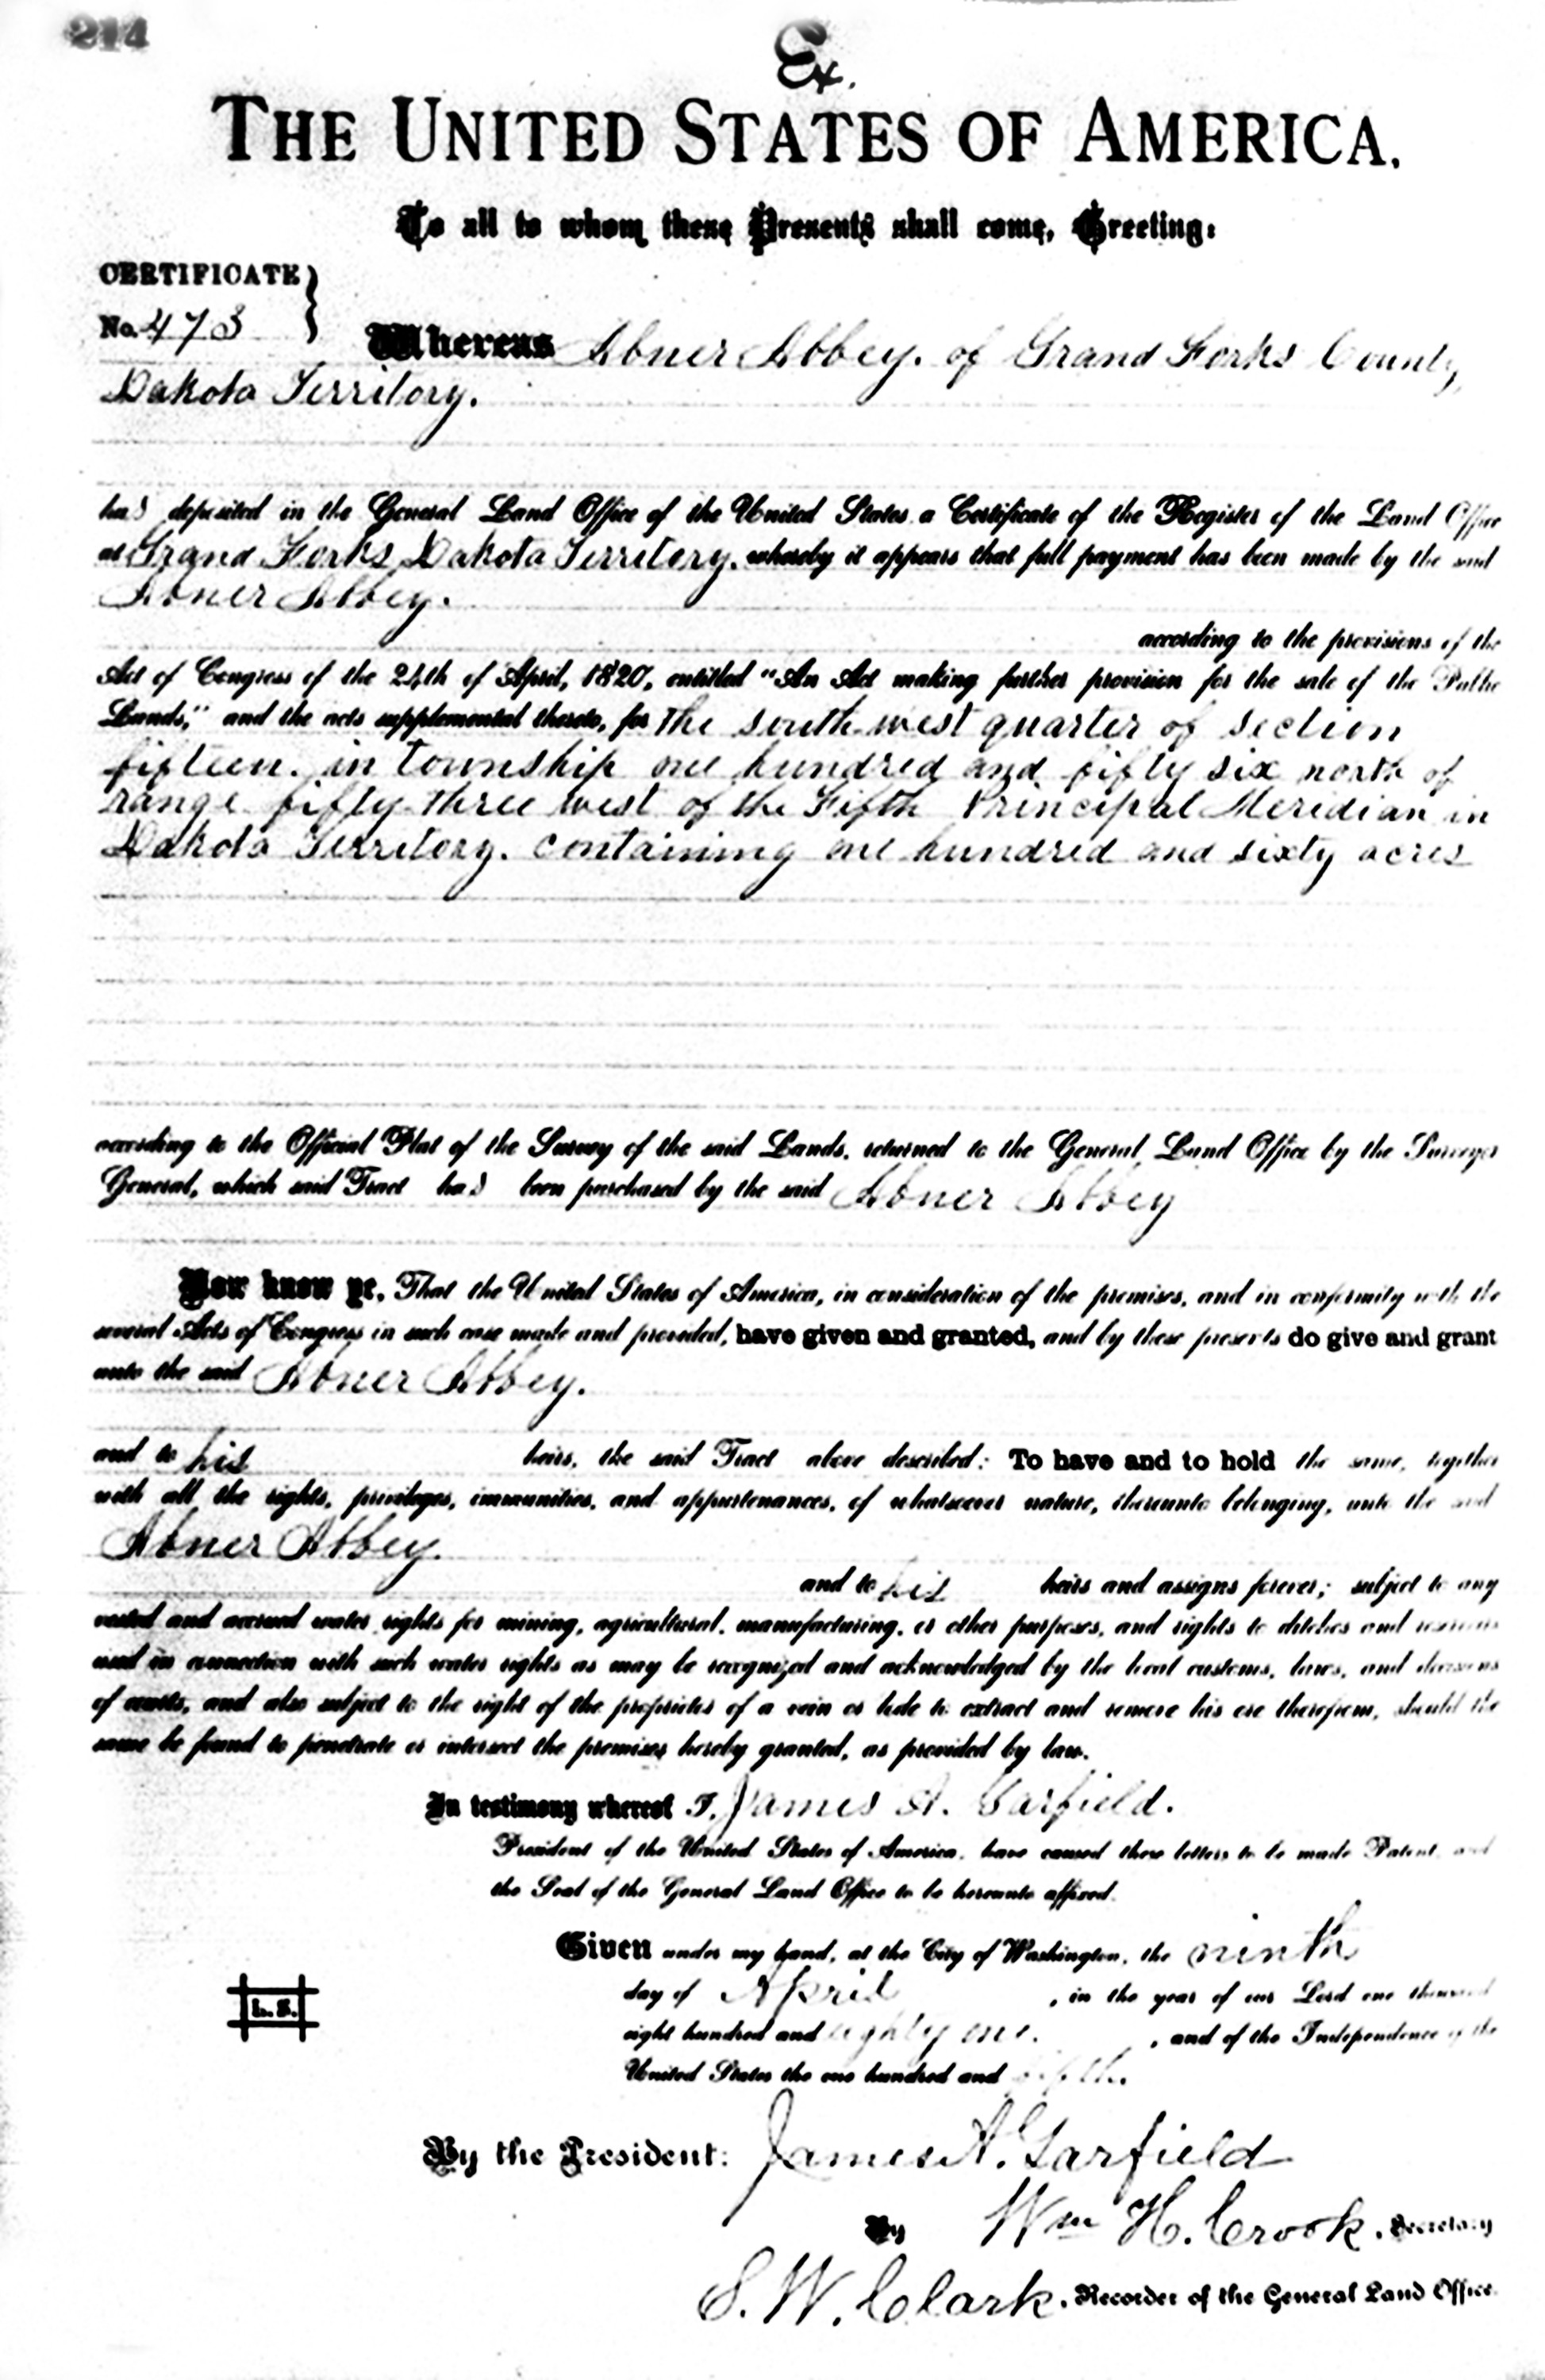 214
Ex.
THE UNITED STATES OF AMERICA.
To all to whom these Presents shall come, Greeting:
CERTIFICATE
No. 473
Whereas Abner Abbey. of Grand Forks County,
Dakota Territory.
has deposited in the General Land Office of the United States a Certificate of the Register of the Land Office
at Grand Forks Dakota Territory. whereby it appears that full payment has been made by the said
Abner Abbey.
according to the provisions of the
Act of Congress of the 24th of April, 1820, entitled "An Act making further provision for the sale of the Public
Lands," and the acts supplemental thereto, for the south west quarter of section
fifteen. in township one hundred and fifty six north of
range fifty three west of the Fifth Principal Meridian in
Dakota Territory. containing one hundred and sixty acres
according to the Official Plat of the Survey of the said Lands, returned to the General Land Office by the Surveyor
General, which said Tract has been purchased by the said Abner Abbey
Now know ye, That the United States of America, in consideration of the premises, and in conformity with the
several Acts of Congress in such case made and provided, have given and granted, and by these presents do give and grant
unto the said Abner Abbey.
and to his heirs, the said Tract above described: To have and to hold the same, together
with all the rights, privileges, immunities, and appurtenances, of whatsoever nature, thereunto belonging, unto the said
Abner Abbey.
and to his heirs and assigns forever; subject to any
vested and accrued water rights for mining, agricultural, manufacturing, or other purposes, and rights to ditches and reservoirs
used in connection with such water rights as may be recognized and acknowledged by the local customs, laws, and decisions
of courts, and also subject to the right of the proprietor of a vein or lode to extract and remove his ore therefrom, should the
same be found to penetrate or intersect the premises hereby granted, as provided by law.
In testimony whereof I, James A. Garfield.
President of the United States of America, have caused these letters to be made Patent, and
the Seal of the General Land Office to be hereunto affixed.
Given under my hand, at the City of Washington, the ninth
day of April, in the year of our Lord one thousand
eight hundred and eighty one., and of the Independence of the
United States the one hundred and fifth.
L. S.
By the President: James A. Garfield
By Wm H. Crook, Secretary
S. W. Clark, Recorder of the General Land Office.